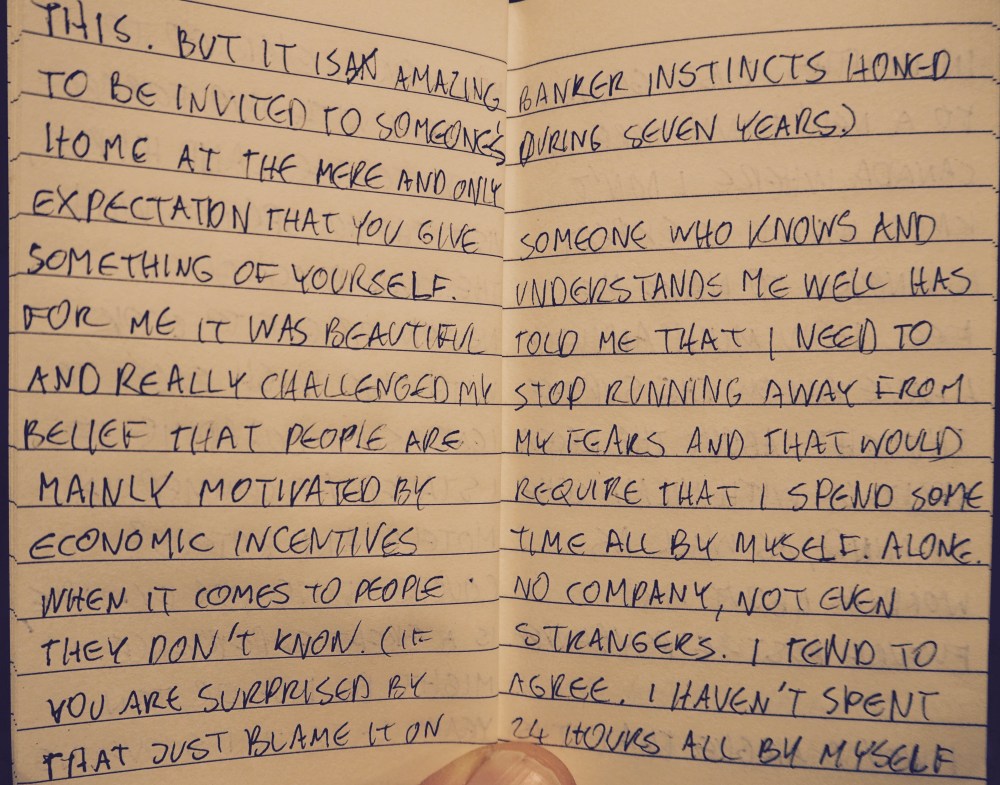 THIS. BUT IT IS AN AMAZING
TO BE INVITED TO SOMEONE'S
HOME AT THE MERE AND ONLY
EXPECTATION THAT YOU GIVE
SOMETHING OF YOURSELF.
FOR ME IT WAS BEAUTIFUL
AND REALLY CHALLENGED MY
BELIEF THAT PEOPLE ARE
MAINLY MOTIVATED BY
ECONOMIC INCENTIVES
WHEN IT COMES TO PEOPLE
THEY DON'T KNOW. (IF
YOU ARE SURPRISED BY
THAT JUST BLAME IT ON
BANKER INSTINCTS HONED
DURING SEVEN YEARS.)
SOMEONE WHO KNOWS AND
UNDERSTANDS ME WELL HAS
TOLD ME THAT I NEED TO
STOP RUNNING AWAY FROM
MY FEARS AND THAT WOULD
REQUIRE THAT I SPEND SOME
TIME ALL BY MYSELF. ALONE.
NO COMPANY, NOT EVEN
STRANGERS. I TEND TO
AGREE. I HAVEN'T SPENT
24 HOURS ALL BY MYSELF